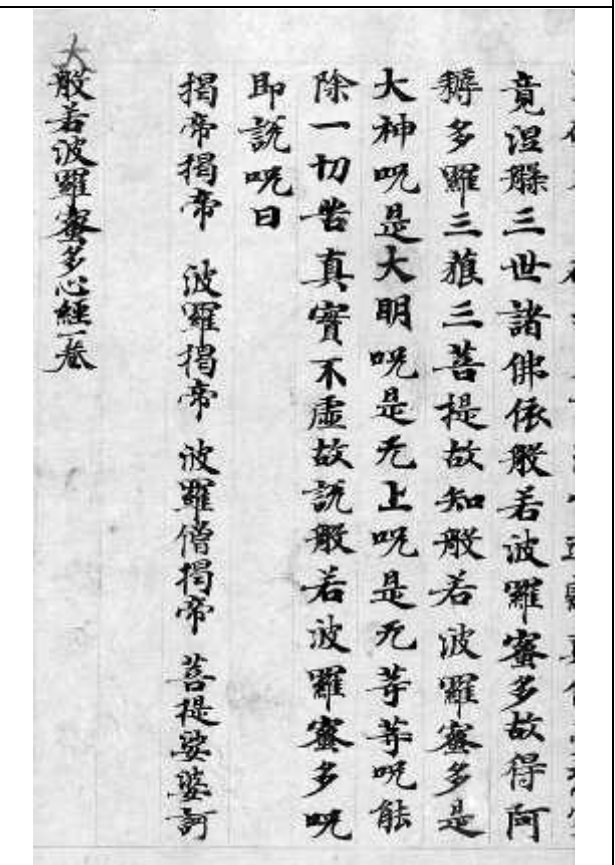 竟涅槃三世諸佛依般若波羅蜜多故得阿
耨多羅三藐三菩提故知般若波羅蜜多是
大神呪是大明呪是无上呪是无等等呪能
除一切苦真實不虛故說般若波羅蜜多呪
即說呪曰
揭帝揭帝 波羅揭帝 波羅僧揭帝 菩提娑婆訶
大般若波羅蜜多心經一卷